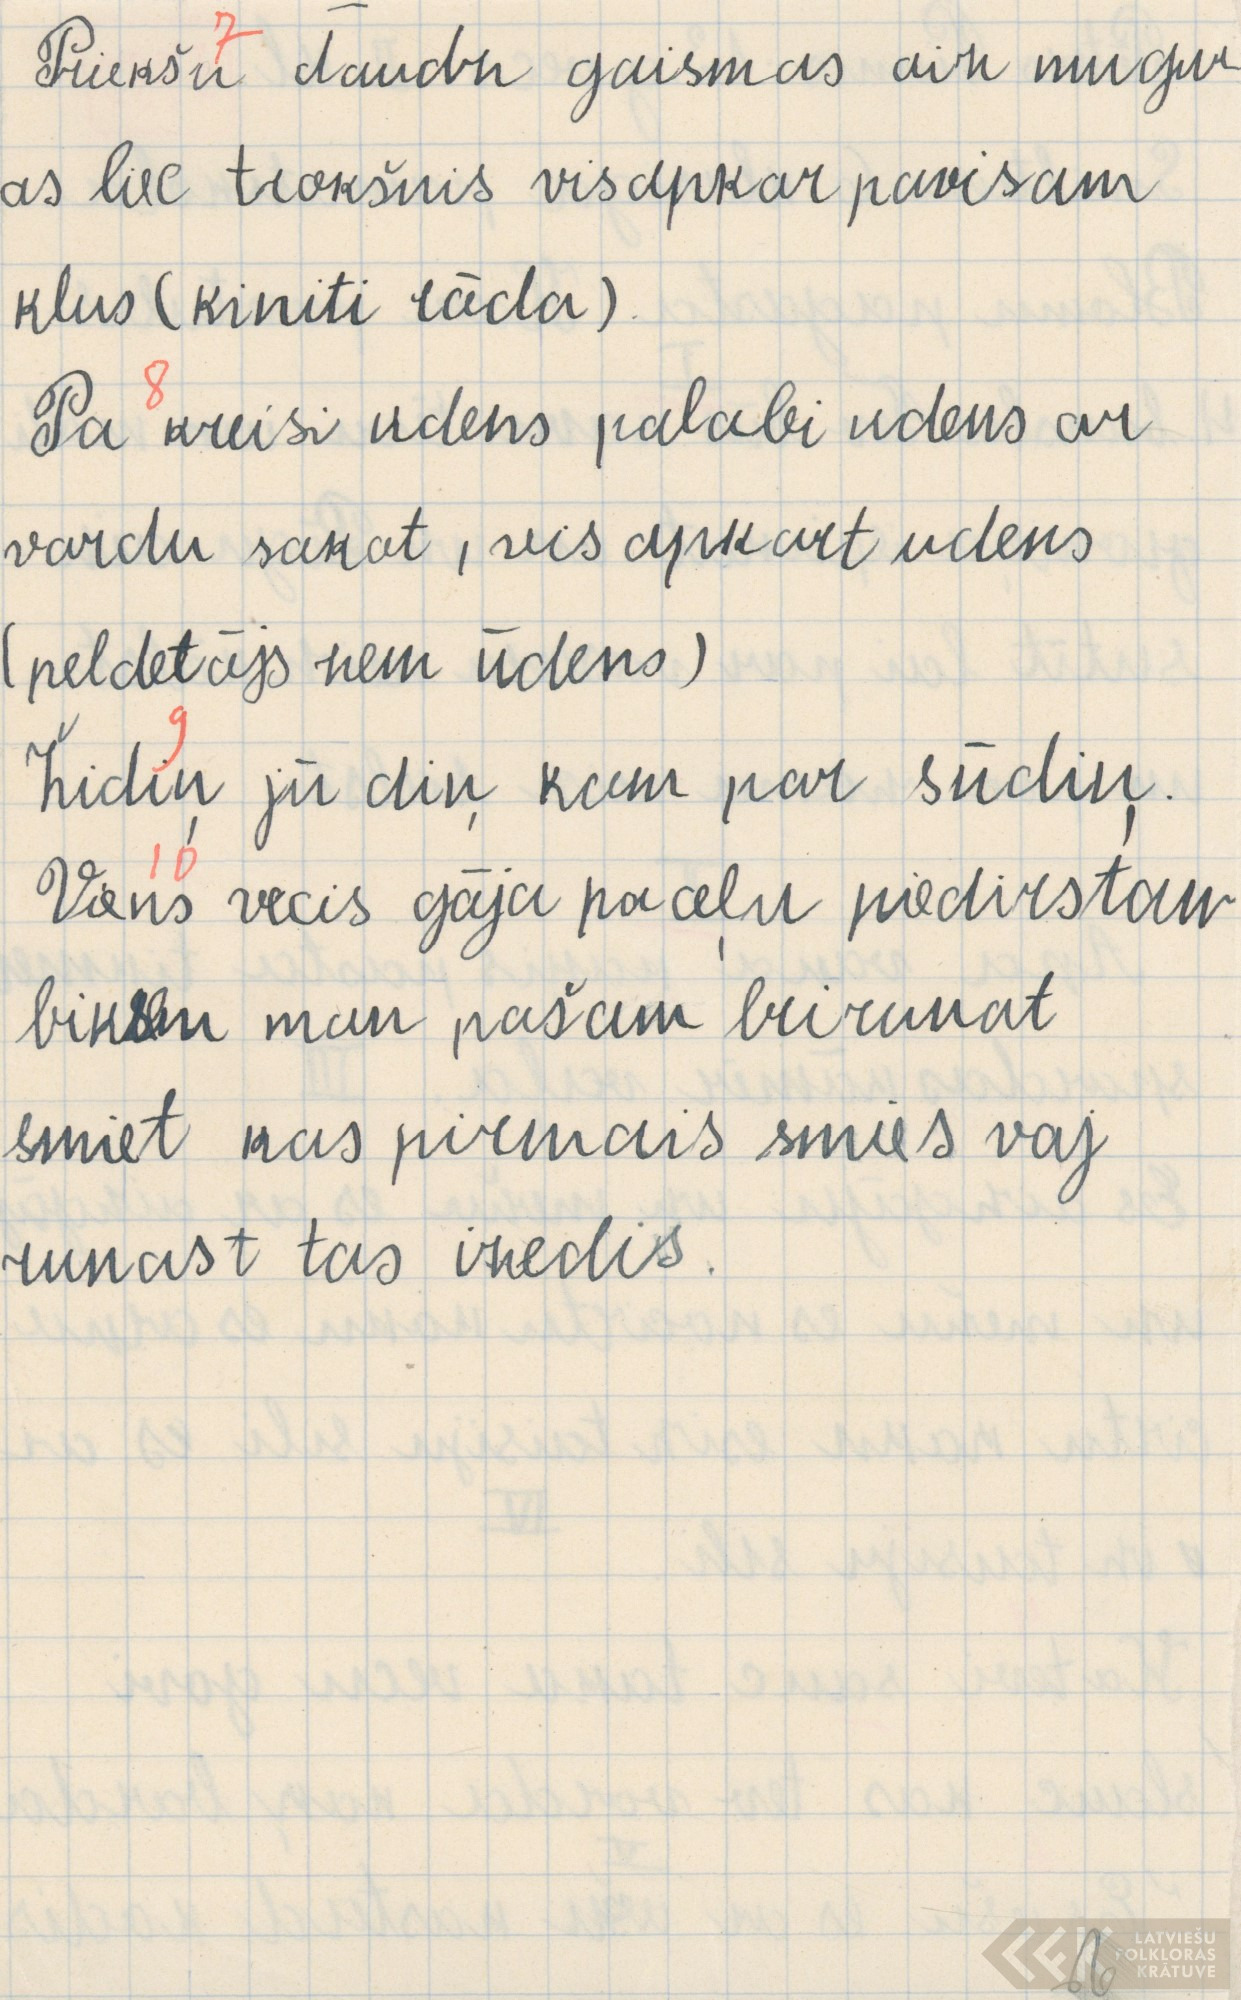 7
Priekšu daudz gaismas aiz mugur
as liec trokšnis visapkar pavisam
klus (kiniti rāda).
8
Pa kreisi udens palabi udens ar
vardu sakot, vis apkart udens
(peldetājs nem ūdens)
9
Židiņ jū diņ kam par sūdiņ.
10
Viens vecis gāja pa ceļu piedirstam
biksem man pašam brirunat
smiet kas pirmais smies vaj
runast tas izedis.
LATVIEŠU
FOLKLORAS
KRĀTUVE